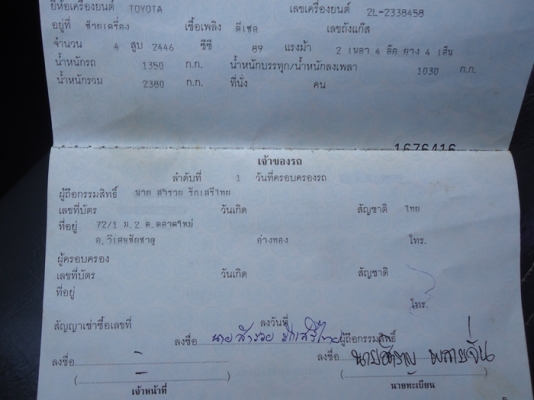 ยี่ห้อเครื่องยนต์ TOYOTA เลขเครื่องยนต์ 2L-2338458
อยู่ที่ ซ้ายเครื่อง เชื้อเพลิง ดีเซล เลขถังแก๊ส
จำนวน 4 สูบ 2446 ซีซี 89 แรงม้า 2 เพลา 4 ล้อ ยาง 4 เส้น
น้ำหนักรถ 1350 ก.ก. น้ำหนักบรรทุก/น้ำหนักลงเพลา 1030 ก.ก.
น้ำหนักรวม 2380 ก.ก. ที่นั่ง คน
1676416
เจ้าของรถ
ลำดับที่ 1 วันที่ครอบครองรถ
ผู้ถือกรรมสิทธิ์ นาย สำรวย รักเสรีไทย
เลขที่บัตร วันเกิด สัญชาติ ไทย
ที่อยู่ 72/1 ม.2 ต.ตลาดใหม่
อ.วิเศษชัยชาญ อ่างทอง โทร.
ผู้ครอบครอง
เลขที่บัตร วันเกิด สัญชาติ
ที่อยู่ โทร.
สัญญาเช่าซื้อเลขที่ ลงวันที่
ลงชื่อ นายสำรวย รักเสรีไทย ผู้ถือกรรมสิทธิ์
ลงชื่อ - ลงชื่อ
เจ้าหน้าที่ นายทะเบียน